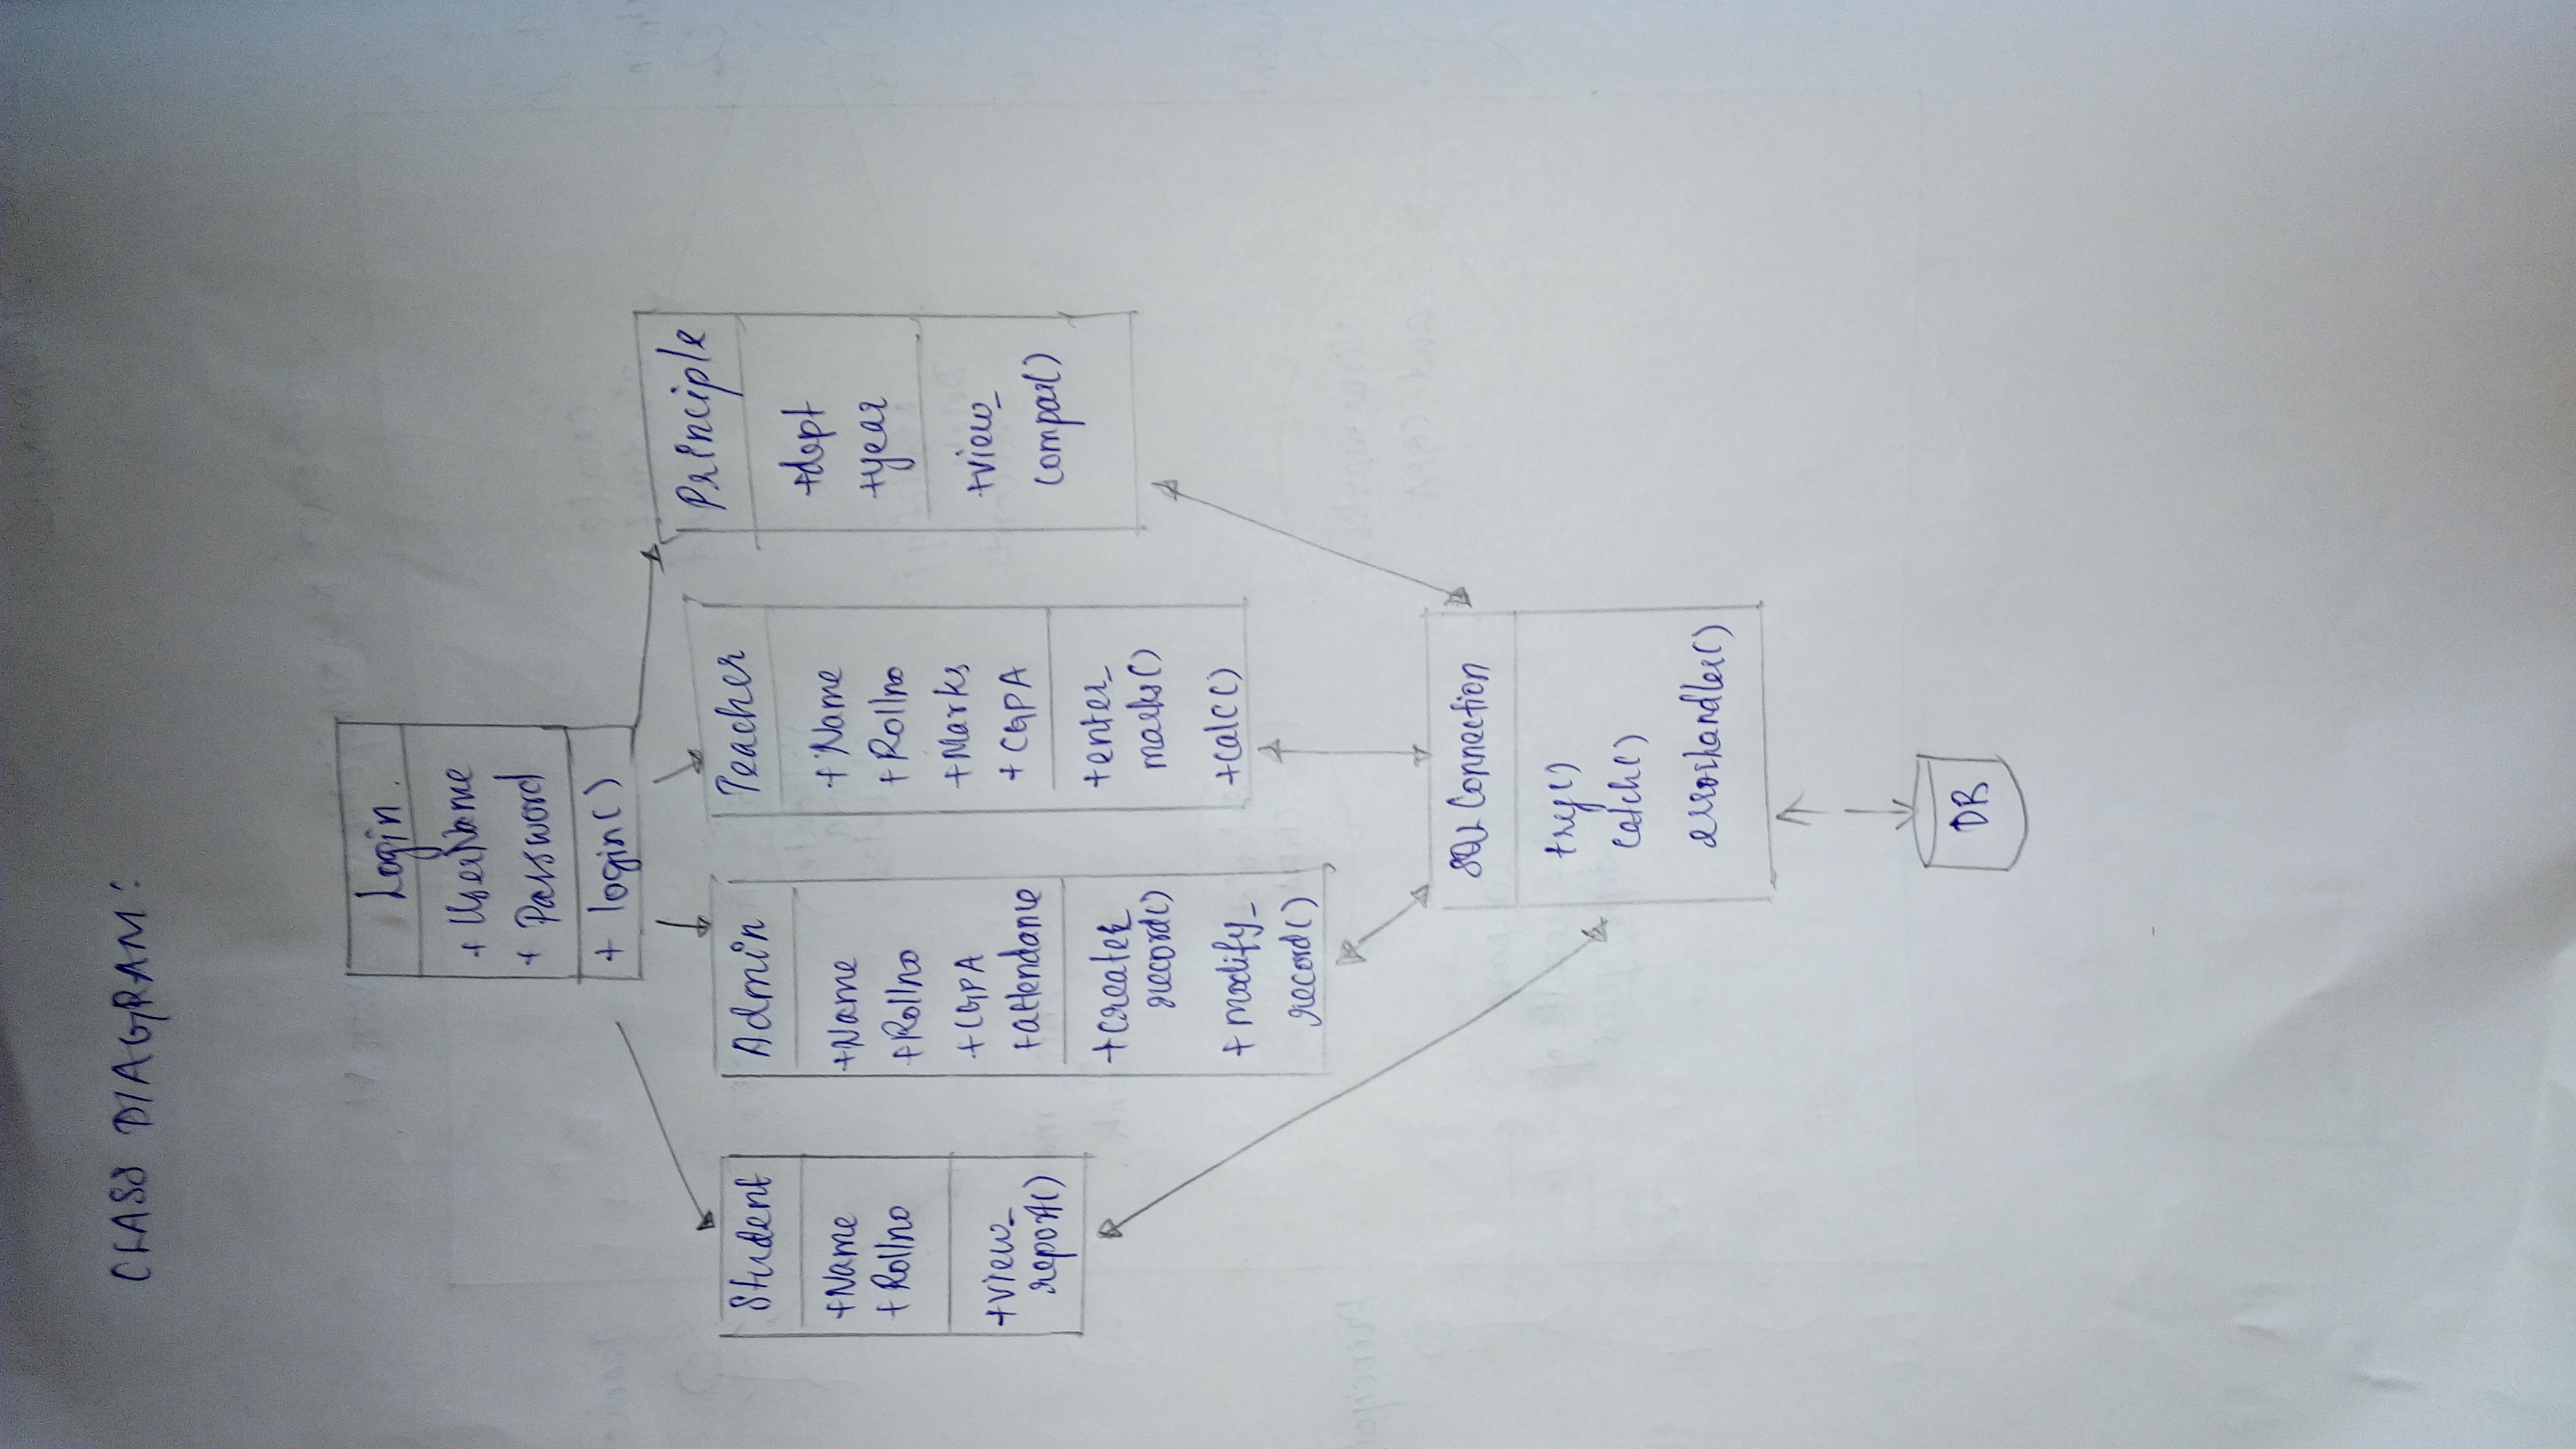 CLASS DIAGRAM:
Login
+ UserName
+ Password
+ login()
Student
+Name
+Rollno
+view_
report()
Admin
+Name
+Rollno
+CGPA
+attendance
+Create_
record()
+modify_
record()
Teacher
+Name
+Rollno
+Marks
+CGPA
+enter_
marks()
+calc()
Principle
+dept
+year
+view_
compar()
SQL Connection
try()
catch()
errorhandler()
DB